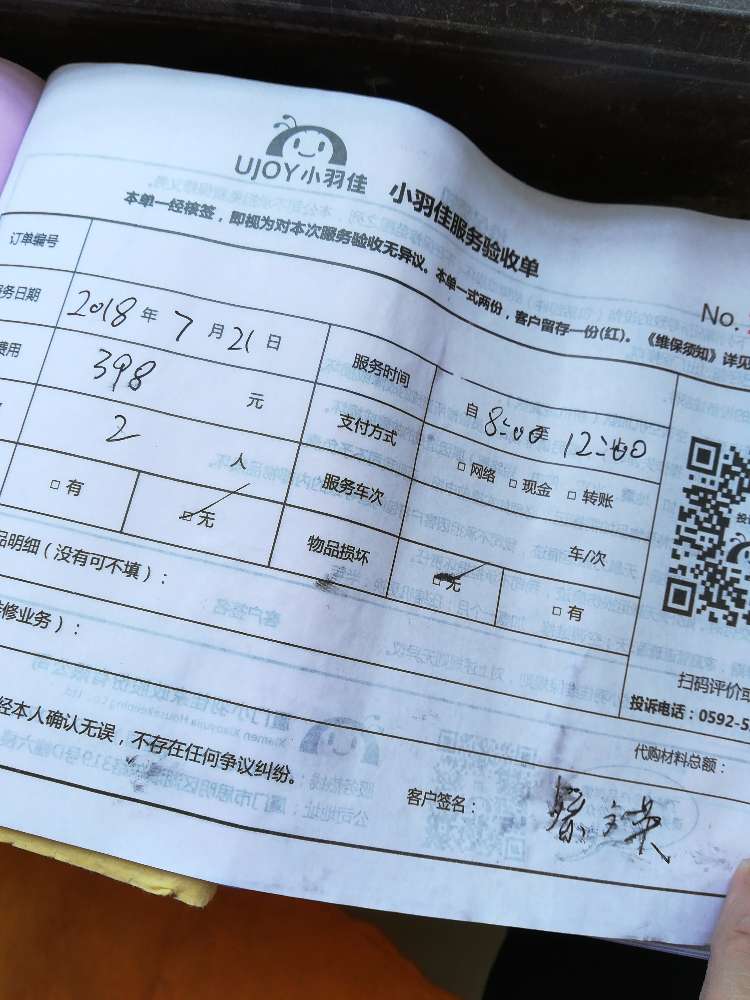 UJOY小羽佳 小羽佳服务验收单
本单一经核签，即视为对本次服务验收无异议。本单一式两份，客户留存一份(红)。《维保须知》详见
No.
订单编号
务日期 2018 年 7 月 21 日 服务时间 自 8:00 至 12:00
费用 398 元 支付方式 □ 网络 □ 现金 □ 转账
2 人 服务车次 车/次
□ 有 □ 无 物品损坏 □ 无 □ 有
品明细（没有可不填）：
修业务）：
扫码评价或
投诉电话：0592-5
代购材料总额：
经本人确认无误，不存在任何争议纠纷。
客户签名：